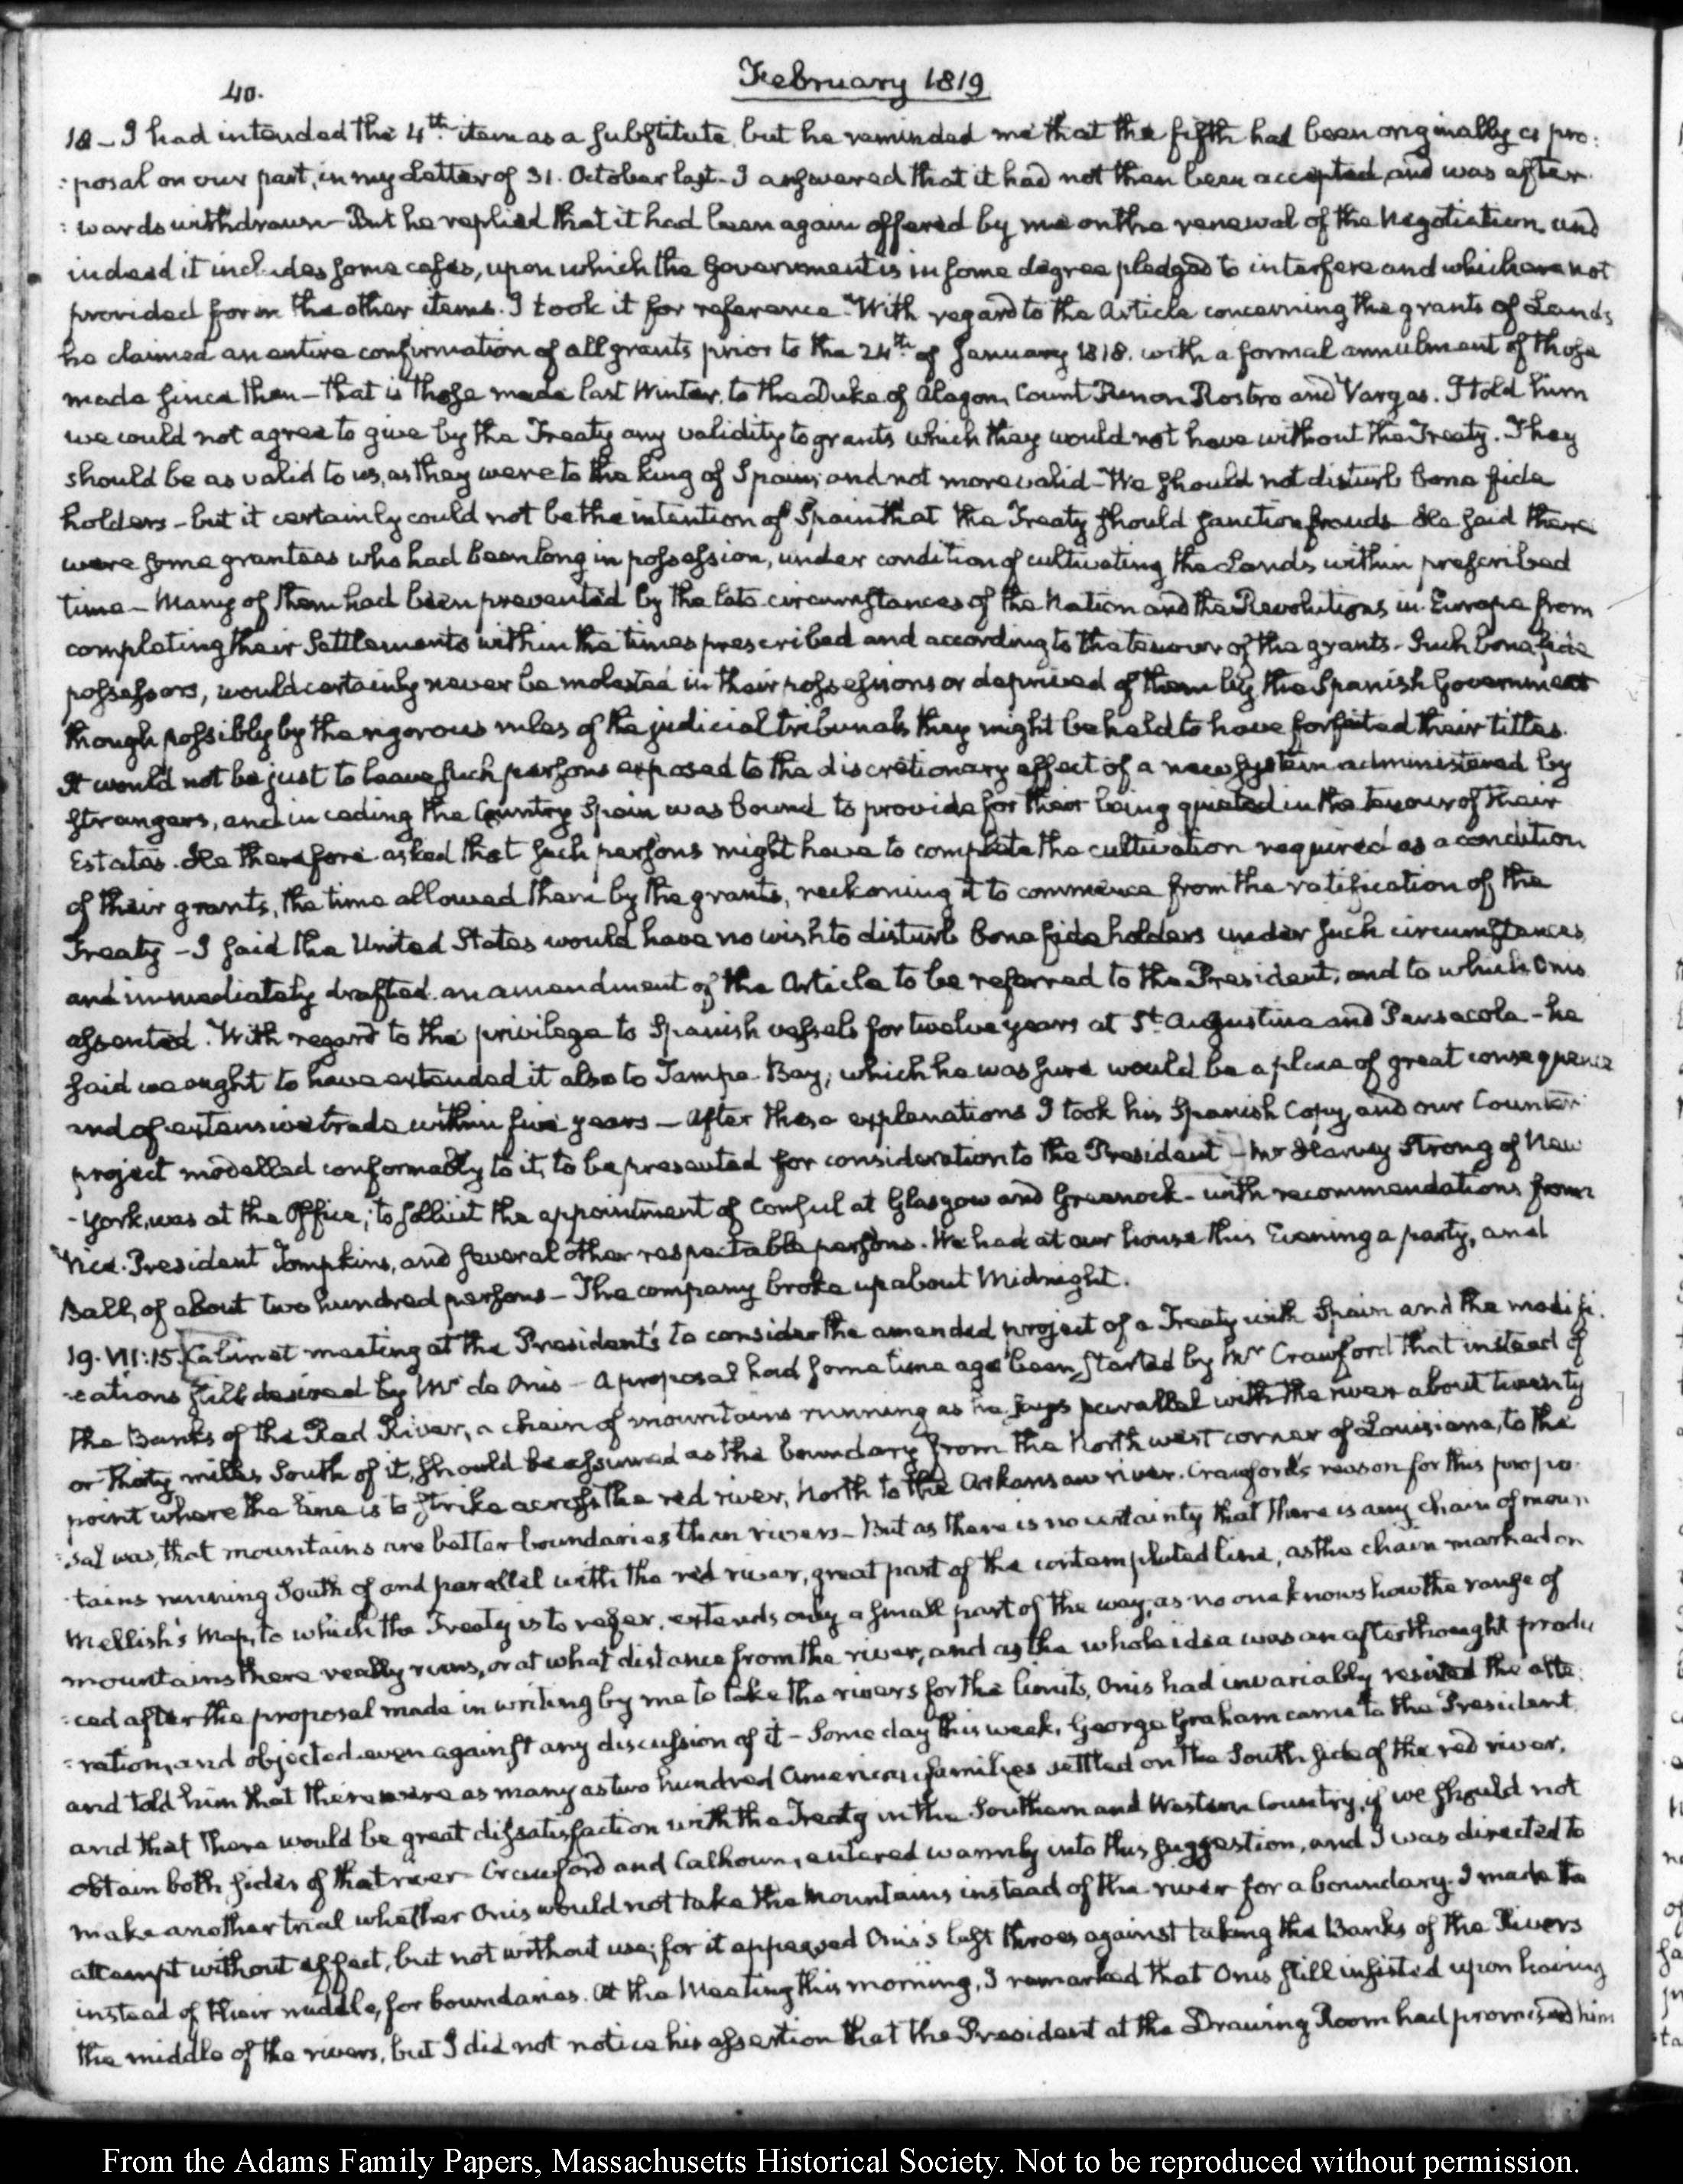 40.
February 1819
18 - I had intended the 4th. item as a substitute, but he reminded me that the fifth had been originally a pro:
:posal on our part, in my letter of 31. October last - I answered that it had not then been accepted, and was after:
:wards withdrawn - But he replied that it had been again offered by me on the renewal of the Negotiation, and
indeed it includes some cases, upon which the Government is in some degree pledged to interfere and which are not
provided for in the other items. I took it for reference. With regard to the Article concerning the grants of Lands
he claimed an entire confirmation of all grants prior to the 24th. of January 1818. with a formal annulment of those
made since then - that is those made last Winter, to the Duke of Alagon, Count Punon Rostro and Vargas. I told him
we could not agree to give by the Treaty any validity to grants which they would not have without the Treaty. They
should be as valid to us, as they were to the king of Spain; and not more valid - We should not disturb bona fide
holders - but it certainly could not be the intention of Spain that the Treaty should sanction frauds. He said there
were some grantees who had been long in possession, under condition of cultivating the Lands within prescribed
time - Many of them had been prevented by the late circumstances of the Nation and the Revolutions in Europe from
completing their Settlements within the times prescribed and according to the tenour of the grants - Such bona fide
possessors, would certainly never be molested in their possessions or deprived of them by the Spanish Government
though possibly by the rigorous rules of the judicial tribunals they might be held to have forfeited their titles.
It would not be just to leave such persons exposed to the discretionary effect of a new system administered by
strangers, and in ceding the Country Spain was bound to provide for their being quieted in the tenour of their
Estates. He therefore asked that such persons might have to complete the cultivation required as a condition
of their grants, the time allowed them by the grants, reckoning it to commence from the ratification of the
Treaty - I said the United States would have no wish to disturb bona fide holders under such circumstances,
and immediately drafted an amendment of the Article to be referred to the President, and to which Onis
assented. With regard to the privilege to Spanish vessels for twelve years at St. Augustine and Pensacola - he
said we ought to have extended it also to Tampa Bay, which he was sure would be a place of great consequence
and of extensive trade within five years - After these explanations I took his Spanish Copy, and our Counter
project modelled conformably to it, to be presented for consideration to the President - Mr Harvey Strong of New
-York, was at the Office, to sollicit the appointment of Consul at Glasgow and Greenock - with recommendations from
Vice-President Tompkins, and several other respectable persons. We had at our house this Evening a party, and
Ball, of about two hundred persons - The company broke up about Midnight.
19. VII:15. Cabinet meeting at the President's to consider the amended project of a Treaty with Spain and the modifi:
:cations still desired by Mr de Onis - A proposal had some time ago been started by Mr Crawford that instead of
the Banks of the Red River, a chain of mountains running as he says parallel with the river about twenty
or thirty miles South of it, should be assumed as the boundary from the North west corner of Louisiana, to the
point where the line is to strike across the red river, North to the Arkansaw river. Crawford's reason for this propo:
:sal was, that mountains are better boundaries than rivers - But as there is no certainty that there is any chain of moun
:tains running South of and parallel with the red river, great part of the contemplated line, as the chain marked on
Mellish's Map, to which the Treaty is to refer, extends only a small part of the way, as no one knows how the range of
mountains there really runs, or at what distance from the river, and as the whole idea was an afterthought produ
:ced after the proposal made in writing by me to take the rivers for the limits, Onis had invariably resisted the alte:
:ration, and objected even against any discussion of it - Some day this week, George Graham came to the President
and told him that there were as many as two hundred American families settled on the South side of the red river,
and that there would be great dissatisfaction with the Treaty in the Southern and Western Country, if we should not
obtain both sides of that river - Crawford and Calhoun, entered warmly into this suggestion, and I was directed to
make another trial whether Onis would not take the Mountains instead of the river for a boundary. I made the
attempt without effect, but not without use; for it appeased Onis's last throes against taking the Banks of the Rivers
instead of their middle, for boundaries. At the Meeting this morning, I remarked that Onis still insisted upon having
the middle of the rivers, but I did not notice his assertion that the President at the Drawing Room had promised him
From the Adams Family Papers, Massachusetts Historical Society. Not to be reproduced without permission.